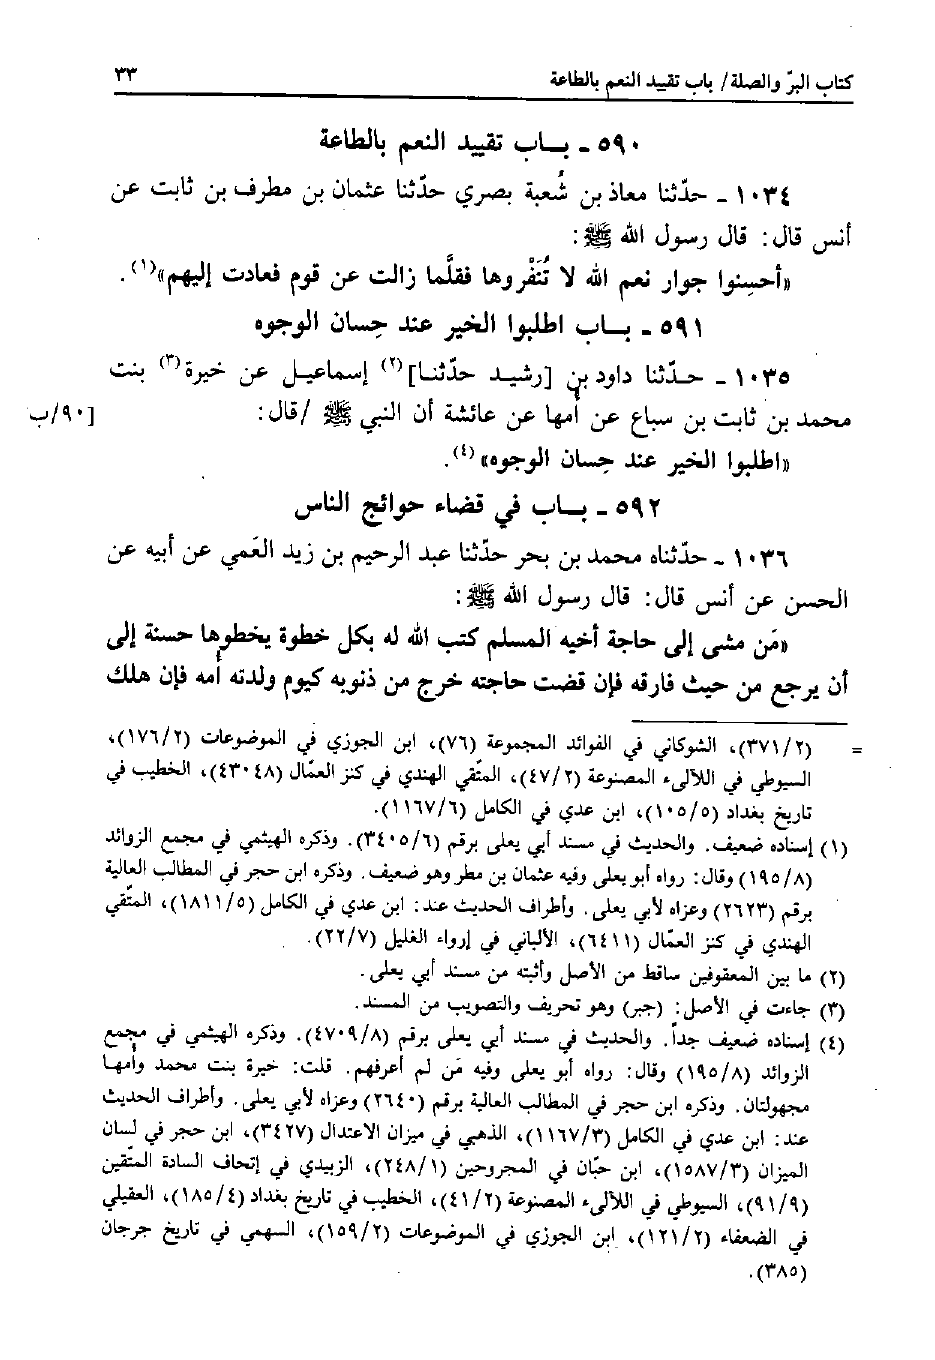 كتاب البرّ والصلة/ باب تقييد النعم بالطاعة ٣٣
٥٩٠ ـ بـاب تقييد النعم بالطاعة
١٠٣٤ ـ حدّثنا معاذ بن شُعبة بصري حدّثنا عثمان بن مطرف بن ثابت عن
أنس قال: قال رسول الله ﷺ:
«أحسِنوا جوار نعم الله لا تُنَفْروها فقلَّما زالت عن قوم فعادت إليهم»(١).
٥٩١ ـ بـاب اطلبوا الخير عند حِسان الوجوه
١٠٣٥ ـ حـدّثنا داود بن [رشيد حدّثنـا](٢) إسماعيـل عن خيرة(٣) بنت
محمد بن ثابت بن سباع عن أمها عن عائشة أن النبي ﷺ /قال: [٩٠/ب
«اطلبوا الخير عند حِسان الوجوه»(٤).
٥٩٢ ـ بـاب في قضاء حوائج الناس
١٠٣٦ ـ حدّثناه محمد بن بحر حدّثنا عبد الرحيم بن زيد العَمي عن أبيه عن
الحسن عن أنس قال: قال رسول الله ﷺ:
«مَن مشى إلى حاجة أخيه المسلم كتب الله له بكل خطوة يخطوها حسنة إلى
أن يرجع من حيث فارقه فإن قضت حاجته خرج من ذنوبه كيوم ولدته أمه فإن هلك
= (٣٧١/٢)، الشوكاني في الفوائد المجموعة (٧٦)، ابن الجوزي في الموضوعات (١٧٦/٢)،
السيوطي في اللآلىء المصنوعة (٤٧/٢)، المتّقي الهندي في كنز العمّال (٤٣٠٤٨)، الخطيب في
تاريخ بغداد (١٠٥/٥)، ابن عدي في الكامل (١١٦٧/٦).
(١) إسناده ضعيف. والحديث في مسند أبي يعلى برقم (٣٤٠٥/٦). وذكره الهيثمي في مجمع الزوائد
(١٩٥/٨) وقال: رواه أبو يعلى وفيه عثمان بن مطر وهو ضعيف. وذكره ابن حجر في المطالب العالية
برقم (٢٦٢٣) وعزاه لأبي يعلى. وأطراف الحديث عند: ابن عدي في الكامل (١٨١١/٥)، المتّقي
الهندي في كنز العمّال (٦٤١١)، الألباني في إرواء الغليل (٢٢/٧).
(٢) ما بين المعقوفين ساقط من الأصل وأثبته من مسند أبي يعلى.
(٣) جاءت في الأصل: (جبر) وهو تحريف والتصويب من المسند.
(٤) إسناده ضعيف جداً. والحديث في مسند أبي يعلى برقم (٤٧٠٩/٨). وذكره الهيثمي في مجمع
الزوائد (١٩٥/٨) وقال: رواه أبو يعلى وفيه مَن لم أعرفهم. قلت: خيرة بنت محمد وأمها
مجهولتان. وذكره ابن حجر في المطالب العالية برقم (٢٦٤٠) وعزاه لأبي يعلى. وأطراف الحديث
عند: ابن عدي في الكامل (١١٦٧/٣)، الذهبي في ميزان الاعتدال (٣٤٢٧)، ابن حجر في لسان
الميزان (١٥٨٧/٣)، ابن حبّان في المجروحين (٢٤٨/١)، الزبيدي في إتحاف السادة المتّقين
(٩١/٩)، السيوطي في اللآلىء المصنوعة (٤١/٢)، الخطيب في تاريخ بغداد (١٨٥/٤)، العقيلي
في الضعفاء (١٢١/٢)، ابن الجوزي في الموضوعات (١٥٩/٢)، السهمي في تاريخ جرجان
(٣٨٥).